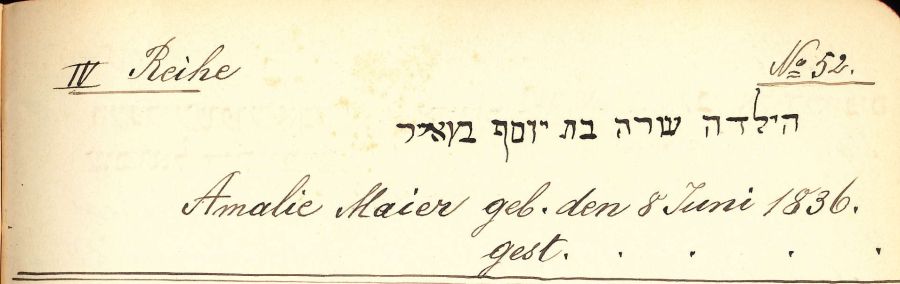 IV Reihe № 52.
הילדה שרה בת יוסף
Amalie Maier geb. den 8 Juni 1836.
gest. . . . .